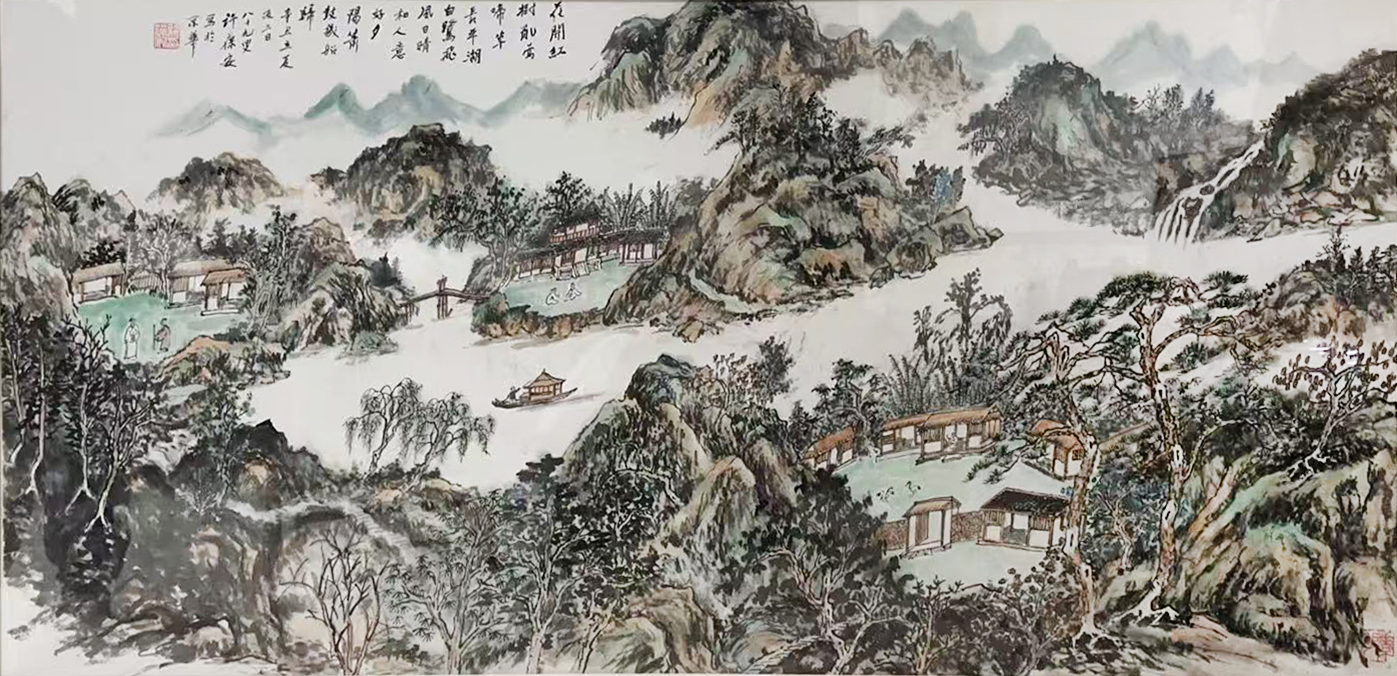 花開紅
樹亂鶯
啼草
長平湖
白鷺飛
風日晴
和人意
好夕
陽簫
鼓幾船
歸
辛丑立夏
日
八十九叟
許保安
寫於
京華